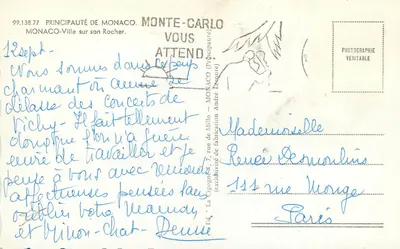 99.138.77 PRINCIPAUTÉ DE MONACO.
MONACO-Ville sur son Rocher.
MONTE-CARLO
VOUS
ATTEND
PHOTOGRAPHIE
VÉRITABLE
12 sept.
Nous sommes dans ce pays
charmant où on se
délasse des concerts de
Vichy - Il fait tellement
doux que l'on n'a guère
envie de travailler et je
pense à vous avec
affectueuses pensées sans
oublier votre Maman
et Minon-Chat - Denise
Mademoiselle
Renée Desmoulins
111 rue Monge
Paris